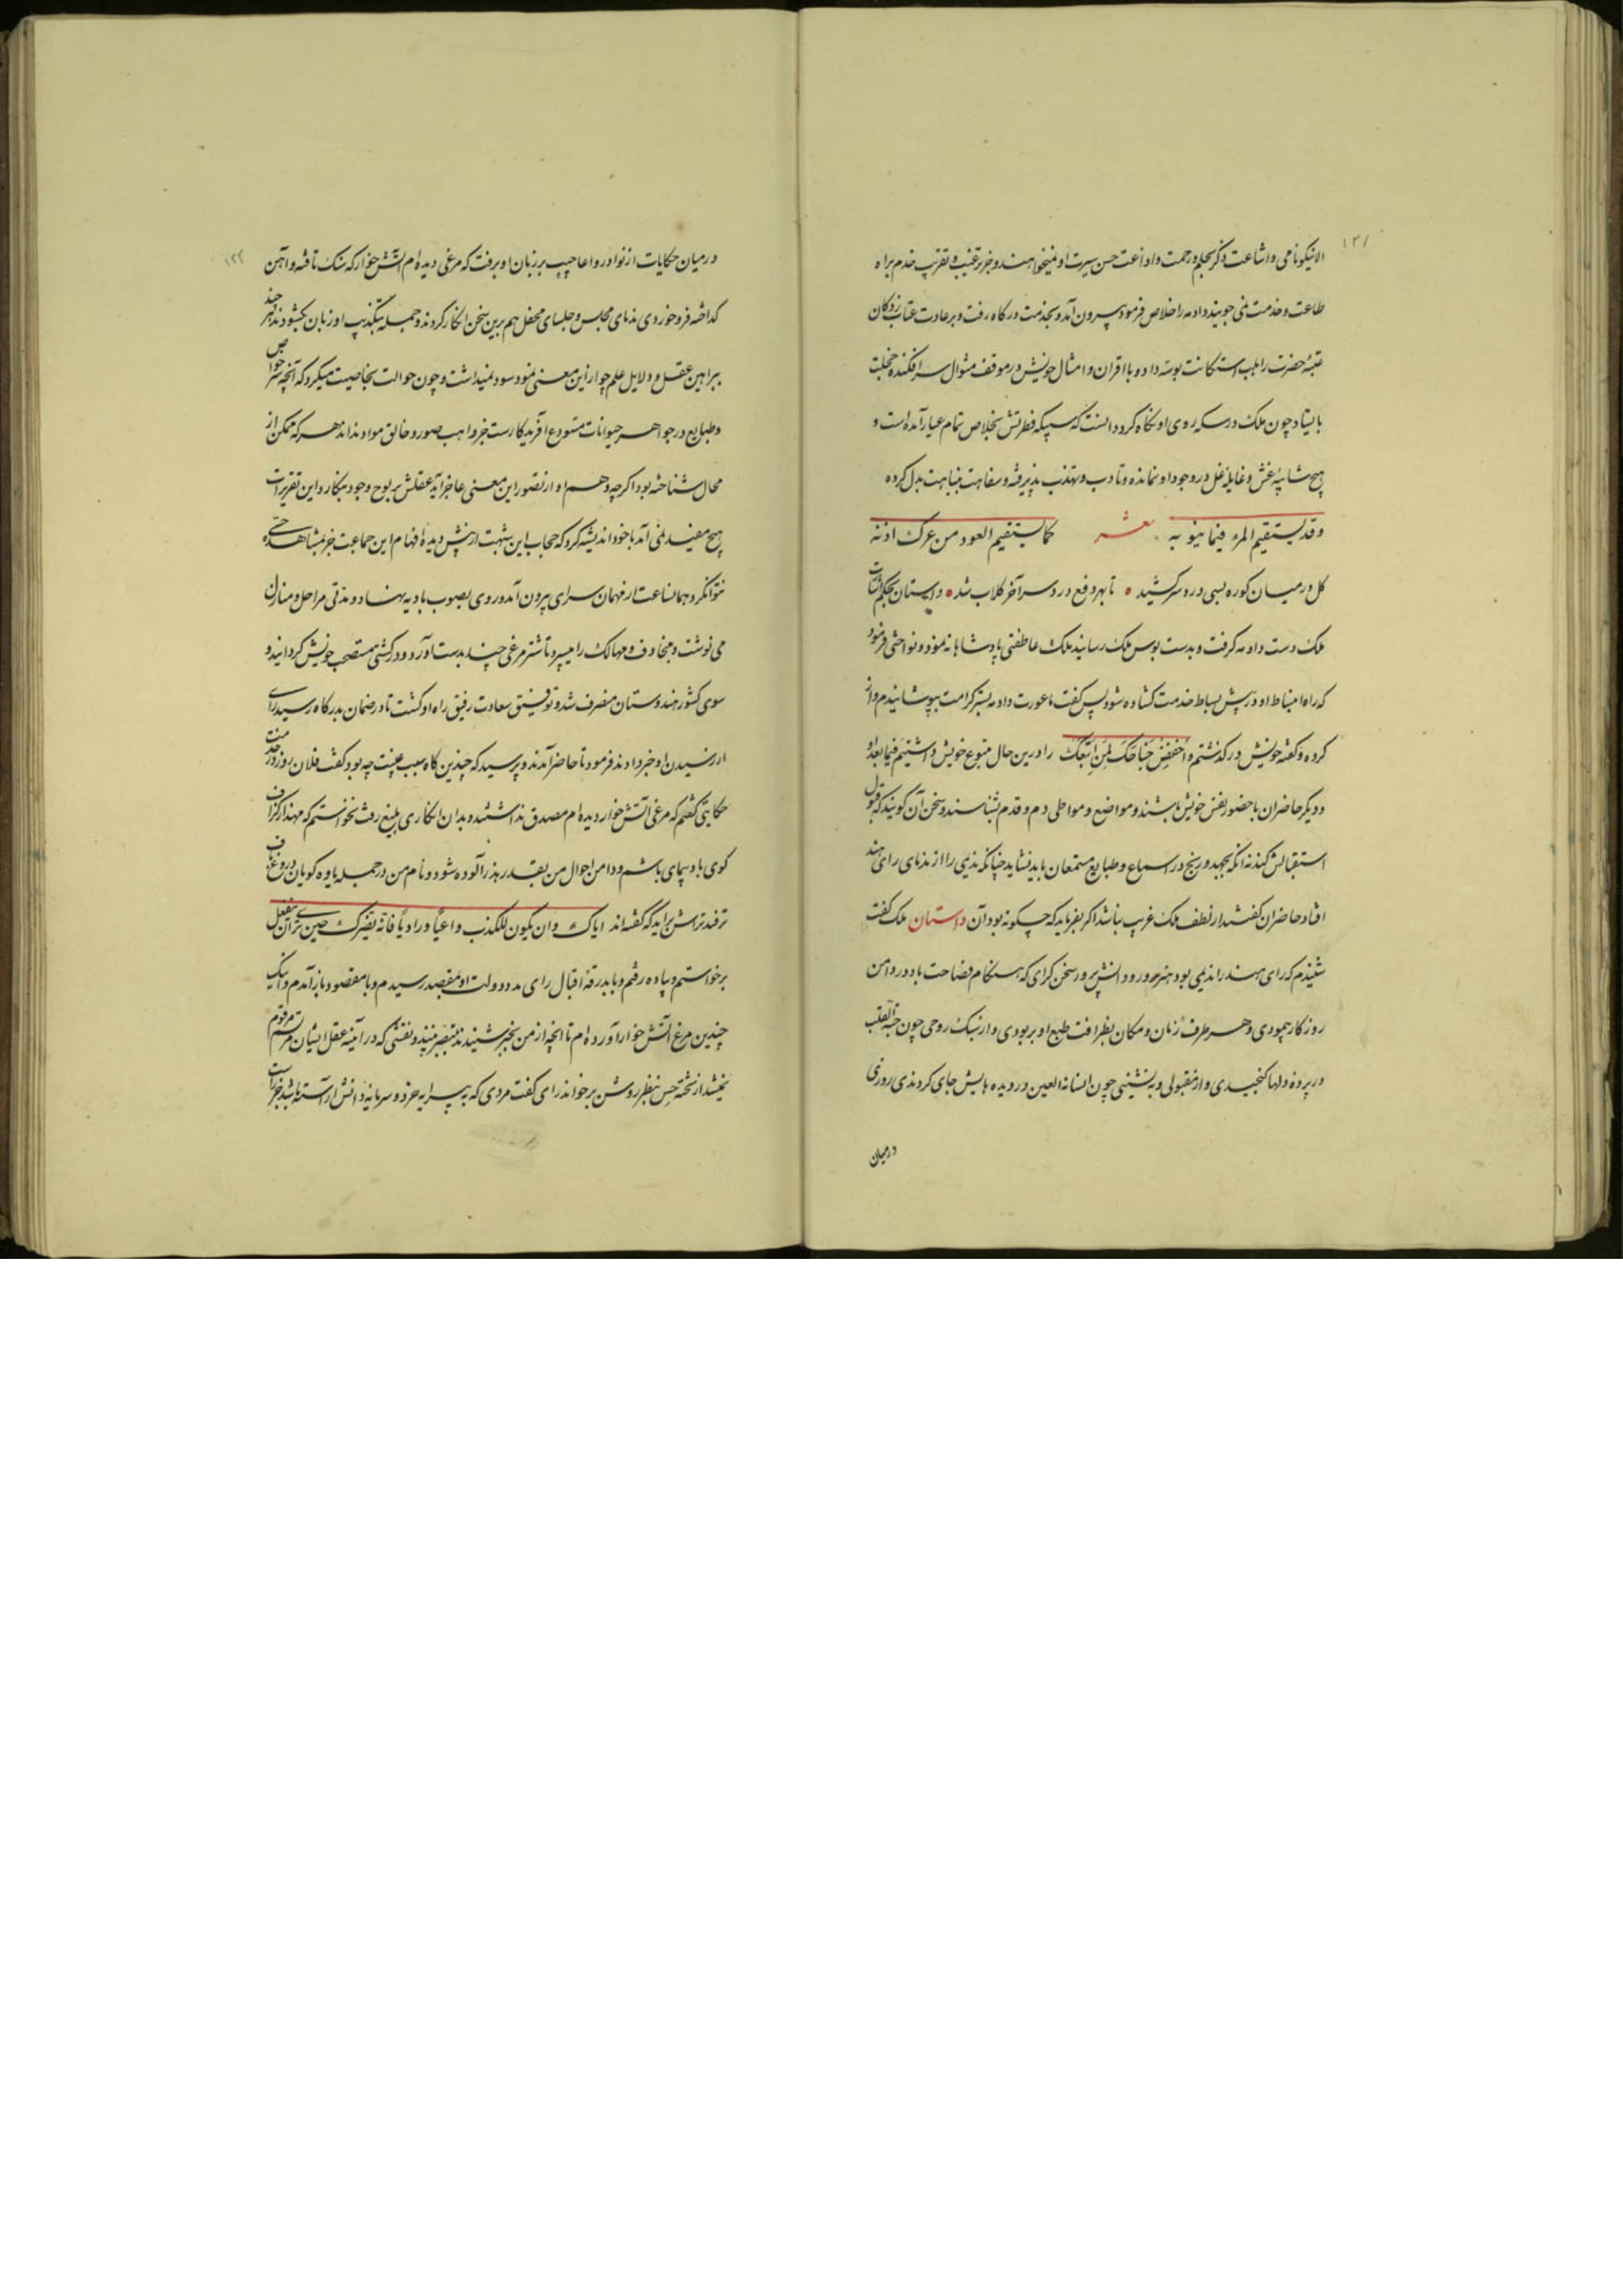 ۱۳۱
الا نیکونامی و اشاعت ذکر بحلم و رحمت و اذاعت حسن سیرت او نمیخواهند و جز ترغیب و تقریب خدم براه
طاعت و خدمت نمی جویند دادمه را خلاص فرمود بیرون آمد و بخدمت درکاه رفت و بر عادت عتاب زدکان
عتبهٔ حضرت را بلب استکانت بوسه داد و با اقران و امثال خویش در موقف مثول سرافکنده خجلت
بایستاد چون ملک در سکه روی او نکاه کرد دانست که سبیکه فطرتش بخلاص تمام عیار آمده است و
هیچ شایبه غش و غایله غل در وجود او نمانده و تادب و تهذب پذیرفته و سفاهت بنباهت بدل کرده
و قد یستقیم المرء فیما ینوبه شعر کما یستقیم العود من عرک اذنه
کل در میان کوره بسی درد سر کشید تا بهر دفع درد سر آخر کلاب شد داستان بحکم اشارت
ملک دست دادمه کرفت و بدست بوس ملک رسانید ملک عاطفتی پادشاهانه نمود و نواختی فرمود
که راه انبساط او در پیش بساط خدمت کشاده شود پس کفت ما عورت دادمه بستر کرامت بپوشانیدیم و از
کرده و کفته خویش درکذشتیم و اخفض جناحک لمن اتبعک را درین حال متبوع خویش داشتیم فیما بعد او
و دیکر حاضران با حضور نفس خویش باشند و مواضع و مواطی دم و قدم بشناسند و سخن آن کویند که قبول
استقبالش کند نه انکه بجهد و رنج در اسماع و طبایع مستمعان باید نشاند چنانکه ندیمی را از ندمای رای هند
افتاد حاضران کفتند از لطف ملک غریب نباشد اکر بفرماید که چکونه بود آن داستان ملک کفت
شنیدم که رای هند را ندیمی بود هنرپرور و دانش پرور و سخن کزار که هنکام فصاحت باد در دامن
روزکار پیمودی و هر ظرف زمان و مکان بظرافت طبع او پر بودی و از سبک روحی چون حبة القلب
در پرده دلها کنجیدی و از مقبولی و به نشینی چون انسان العین در دیده هایش جای کردندی روزی
درمیان
۱۳۲
درمیان حکایات از نوادر و اعاجیب بر زبان او برفت که مرغی دیده ام آتش خوار که سنک تافته و آهن
کداخته فرو خوردی ندمای مجلس و جلسای محفل هم برین سخن انکار کردند و جمله بتکذیب او زبان بکشودند هر چند
ببراهین عقل و دلایل علم جواز این معنی مینمود سود نمیداشت و چون حوالت بخاصیت میکرد که آنچه سر خواص
و طبایع در جواهر حیوانات مستودع آفریدکارست جز واهب صور و خالق مواد نداند هر که ممکن از
محال شناخته بود اکرچه وهم او از تصور این معنی عاجز آید عقلش بر لوح وجود بنکارد این تقریرات
هیچ مفید نمی آمد با خود اندیشه کرد که حجاب این شبهت از پیش دیده افهام این جماعت جز بمشاهده حسی
نتوان کرد و همان ساعت از مهمان سرای بیرون آمد و روی بصوب بادیه نهاد و مدتی مراحل و منازل
می نوشت و مخاوف و مهالک را میسپرد تا شترمرغی چند بدست آورد و در کشتی مستصحب خویش کردانید و
سوی کشور هندوستان منصرف شد و توفیق سعادت رفیق راه او کشت تا در ضمان بدرکاه رسید رای
از رسیدن او خبر دادند فرمود تا حاضر آمد و پرسید که چندین کاه سبب غیبت چه بود کفت فلان روز در خدمت
حکایتی کفتم که مرغی آتش خوار دیده ام مصدق نداشتند و بدان انکاری بلیغ رفت نخواستم که مهذار کزاف
کوی باد پیمای باشم و دامن احوال من بقدر هذر آلوده شود و نام من در جمله یاوه کویان دروغ باف
ترفند تراش برآید که کفته اند ایاک و ان یکون للکذب واعیا و راویا فانه یضرک حین تری ان ینفعل
برخواستم و پیاده رفتم و با بدرقه اقبال رای و مدد دولت او بمقصد رسیدم و با مقصود باز آمدم و اینک
چندین مرغ آتش خوار آورده ام تا آنچه از من بخبر شنیدند ببصر ببینند و نقشی که در آینه عقل ایشان مرتسم و مرقوم
نمیشد از تخته حس بنظر روشن برخوانند رای کفت مردی که به پیرایه خرد و سرمایه دانش آراسته باشد جز راست